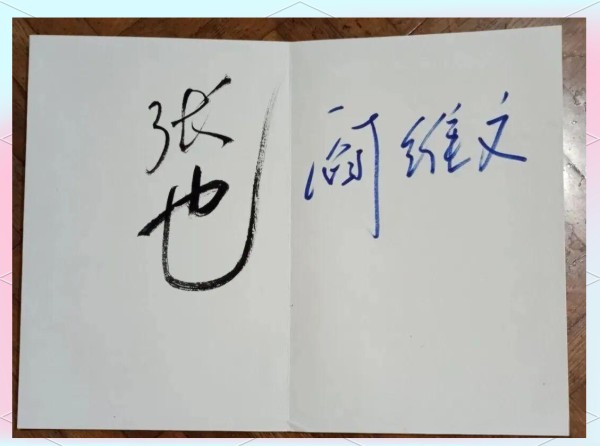 张也
阎维文